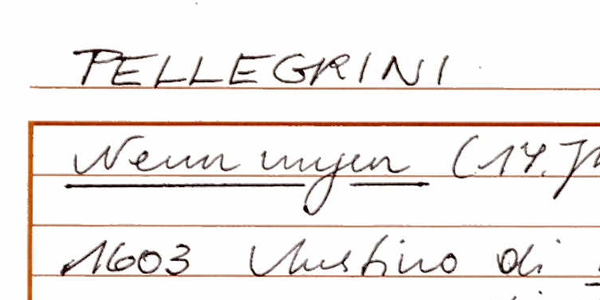 PELLEGRINI
Nennungen (14. J
1603 Christino di